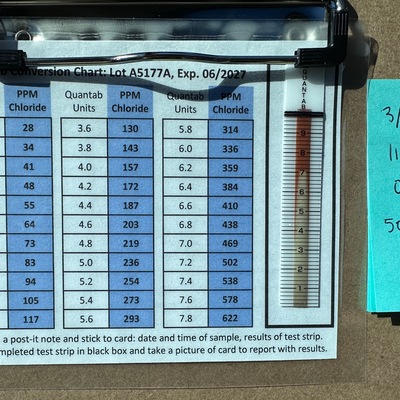 Conversion Chart: Lot A5177A, Exp. 06/2027
PPM Chloride Quantab Units PPM Chloride Quantab Units PPM Chloride
28 3.6 130 5.8 314
34 3.8 143 6.0 336
41 4.0 157 6.2 359
48 4.2 172 6.4 384
55 4.4 187 6.6 410
64 4.6 203 6.8 438
73 4.8 219 7.0 469
83 5.0 236 7.2 502
94 5.2 254 7.4 538
105 5.4 273 7.6 578
117 5.6 293 7.8 622
QUANTAB
9
8
7
6
5
4
3
2
1
a post-it note and stick to card: date and time of sample, results of test strip.
mpleted test strip in black box and take a picture of card to report with results.
3/
11
0
50